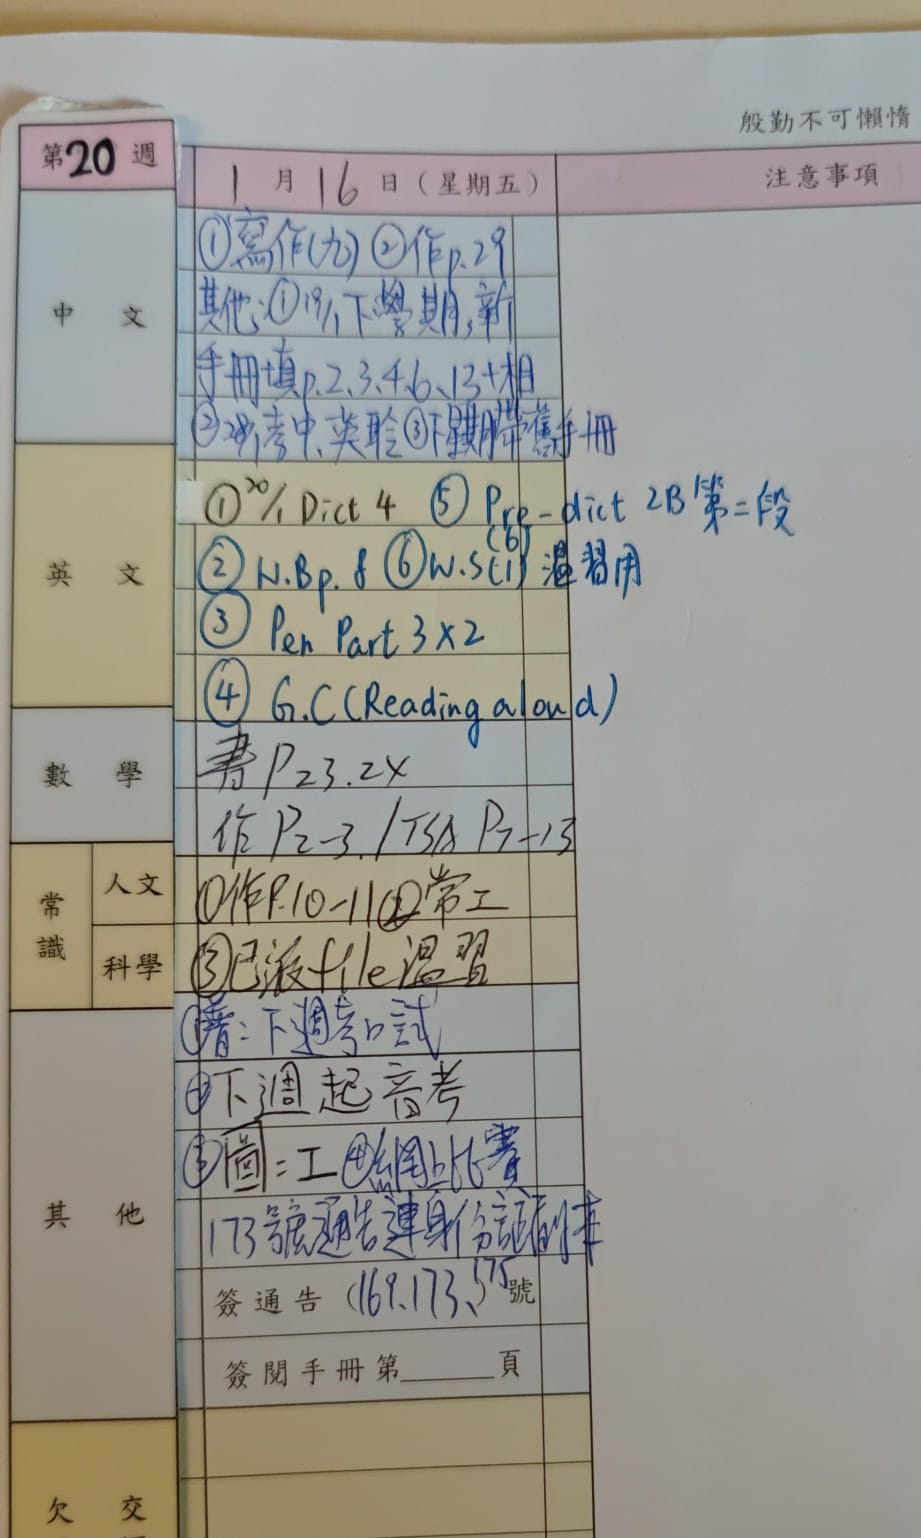 殷勤不可懶惰
第20週
1月16日(星期五)
注意事項
中文
①寫作(九) ②作p.29
其他:①19/1下學期,新
手冊填p.2、3、4、6、13+相
②28/1考中、英聆③下學期帶舊手冊
英文
①20/1 Dict 4 ⑤ Pre-dict 2B 第二段
② W.Bp.8 ⑥W.S(1) (6) 溫習用
③ Pen Part 3×2
④ G.C(Reading aloud)
數學
書P23.24
作P2-3./TSA P7-13
常識
人文
①作P.10-11②常工
科學
③已派file溫習
其他
①普:下週考口試
②下週起音考
③圖:工④網上比賽
173號通告連身份證副本
簽通告(169、173、175)號
簽閱手冊第______頁
欠交